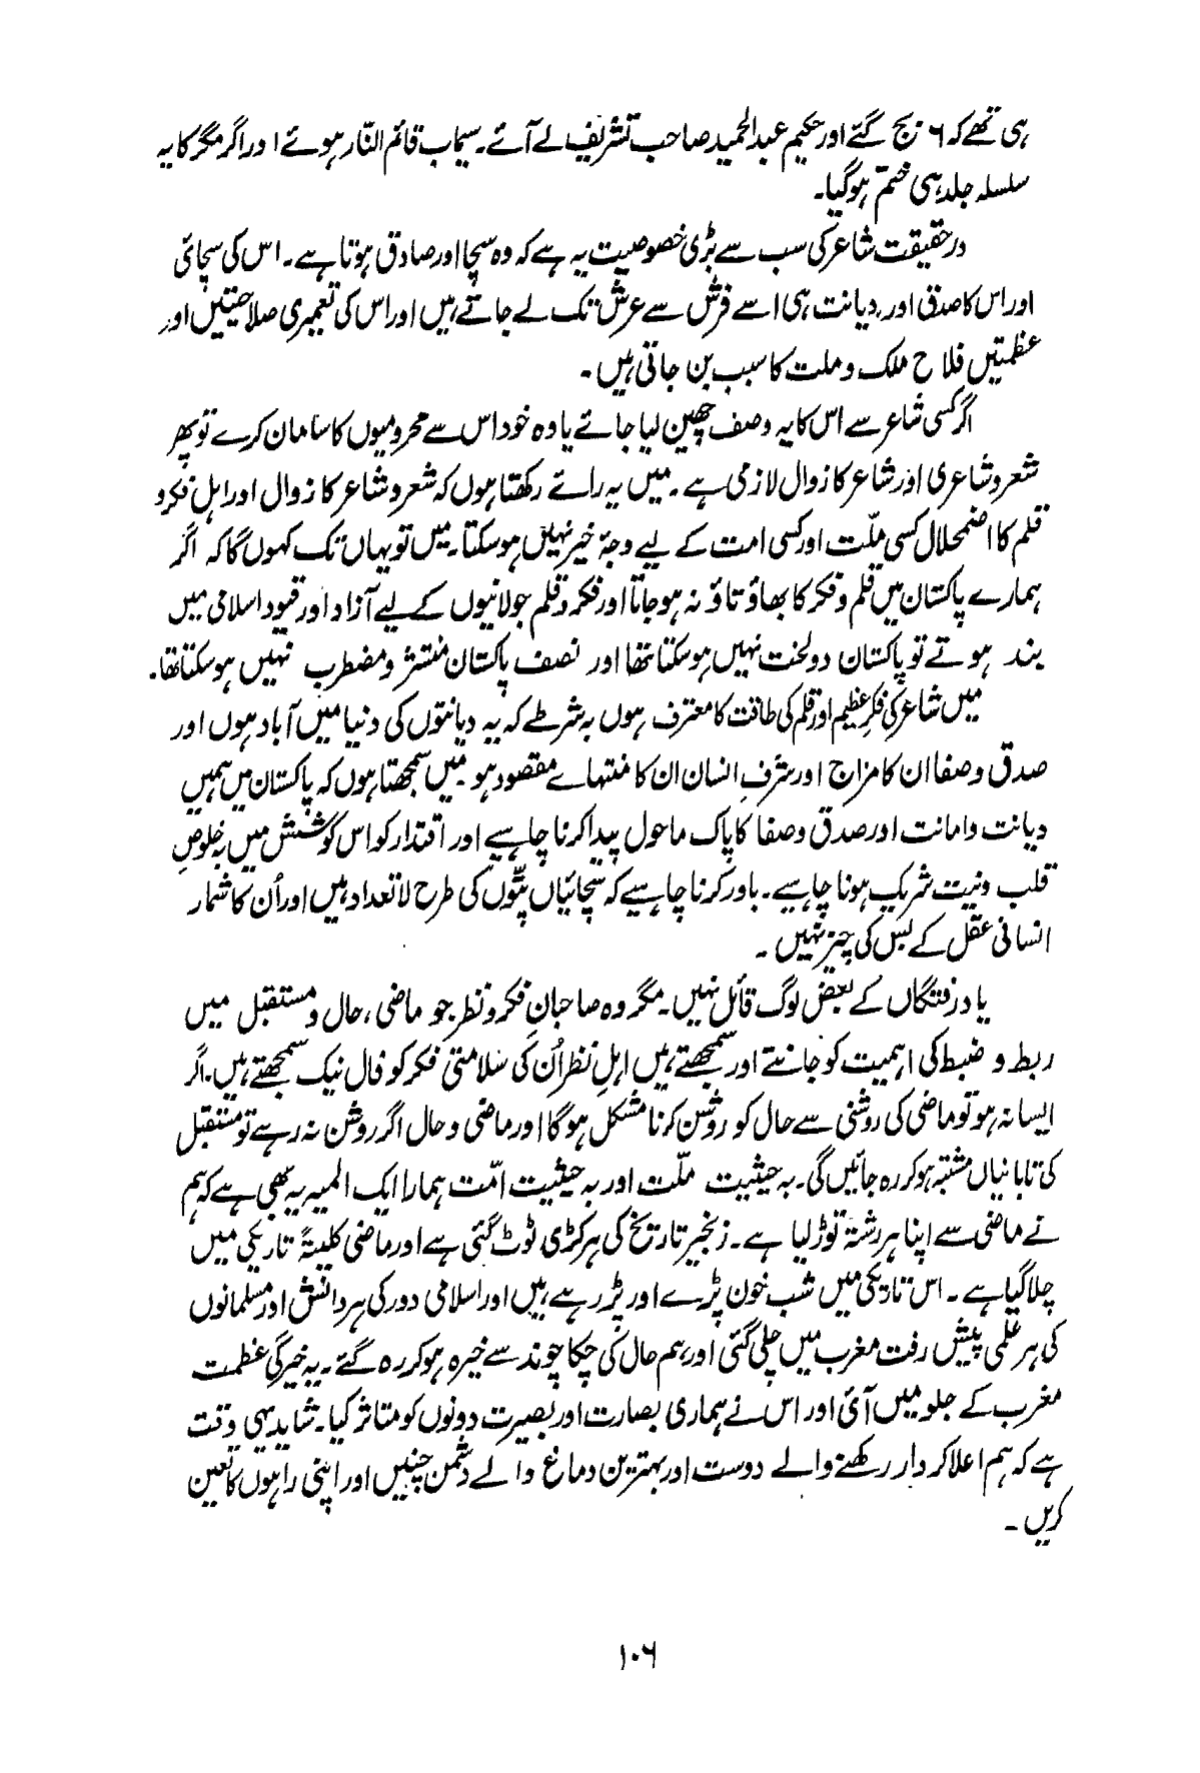 ہی تھے کہ ۶ بج گئے اور حکیم عبدالحمید صاحب تشریف لے آئے۔ سیماب قائم النّار ہوئے اور اگر مگر کا یہ
سلسلہ جلد ہی ختم ہوگیا۔
درحقیقت شاعر کی سب سے بڑی خصوصیت یہ ہے کہ وہ سچا اور صادق ہوتا ہے۔ اس کی سچائی
اور اس کا صدق اور دیانت ہی اسے فرش سے عرش تک لے جاتے ہیں اور اس کی تعمیری صلاحیتیں اور
عظمتیں فلاح ملک و ملت کا سبب بن جاتی ہیں۔
اگر کسی شاعر سے اس کا یہ وصف چھین لیا جائے یا وہ خود اس سے محرومیوں کا سامان کرے تو پھر
شعر و شاعری اور شاعر کا زوال لازمی ہے۔ میں یہ رائے رکھتا ہوں کہ شعر و شاعر کا زوال اور اہل فکر و
قلم کا اضمحلال کسی ملّت اور کسی امت کے لیے وجۂ خیر نہیں ہوسکتا۔ میں تو یہاں تک کہوں گا کہ اگر
ہمارے پاکستان میں قلم و فکر کا بھاؤ تاؤ نہ ہوجاتا اور فکر و قلم جولانیوں کے لیے آزاد اور قیود اسلامی میں
بند ہوتے تو پاکستان دولخت نہیں ہوسکتا تھا اور نصف پاکستان منتشر و مضطرب نہیں ہوسکتا تھا۔
میں شاعر کی فکرِ عظیم اور قلم کی طاقت کا معترف ہوں بہ شرطے کہ یہ دیانتوں کی دنیا میں آباد ہوں اور
صدق و صفا ان کا مزاج اور شرفِ انسان ان کا منتہائے مقصود ہو۔ میں سمجھتا ہوں کہ پاکستان میں ہمیں
دیانت و امانت اور صدق و صفا کا پاک ماحول پیدا کرنا چاہیے اور اقتدار کو اس کوشش میں بہ خلوصِ
قلب و نیت شریک ہونا چاہیے۔ باور کرنا چاہیے کہ سچائیاں پتّوں کی طرح لاتعداد ہیں اور اُن کا شمار
انسانی عقل کے بس کی چیز نہیں۔
یاد رفتگاں کے بعض لوگ قائل نہیں۔ مگر وہ صاحبانِ فکر و نظر جو ماضی، حال و مستقبل میں
ربط و ضبط کی اہمیت کو جانتے اور سمجھتے ہیں اہلِ نظر اُن کی سلامتیٔ فکر کو فال نیک سمجھتے ہیں۔ اگر
ایسا نہ ہو تو ماضی کی روشنی سے حال کو روشن کرنا مشکل ہوگا اور ماضی و حال اگر روشن نہ رہے تو مستقبل
کی تابانیاں مشتبہ ہوکر رہ جائیں گی۔ بہ حیثیت ملّت اور بہ حیثیت امّت ہمارا ایک المیہ یہ بھی ہے کہ ہم
نے ماضی سے اپنا ہر رشتہ توڑ لیا ہے۔ زنجیر تاریخ کی ہر کڑی ٹوٹ گئی ہے اور ماضی کلیتہً تاریکی میں
چلا گیا ہے۔ اس تاریکی میں شب خون پڑے اور پڑ رہے ہیں اور اسلامی دور کی ہر دانش اور مسلمانوں
کی ہر علمی پیش رفت مغرب میں چلی گئی اور ہم حال کی چکا چوند سے خیرہ ہوکر رہ گئے۔ یہ خیرگی عظمت
مغرب کے جلو میں آئی اور اس نے ہماری بصارت اور بصیرت دونوں کو متاثر کیا۔ شاید یہی وقت
ہے کہ ہم اعلا کردار رکھنے والے دوست اور بہترین دماغ والے دشمن چنیں اور اپنی راہوں کا تعین
کریں۔
۱۰۶